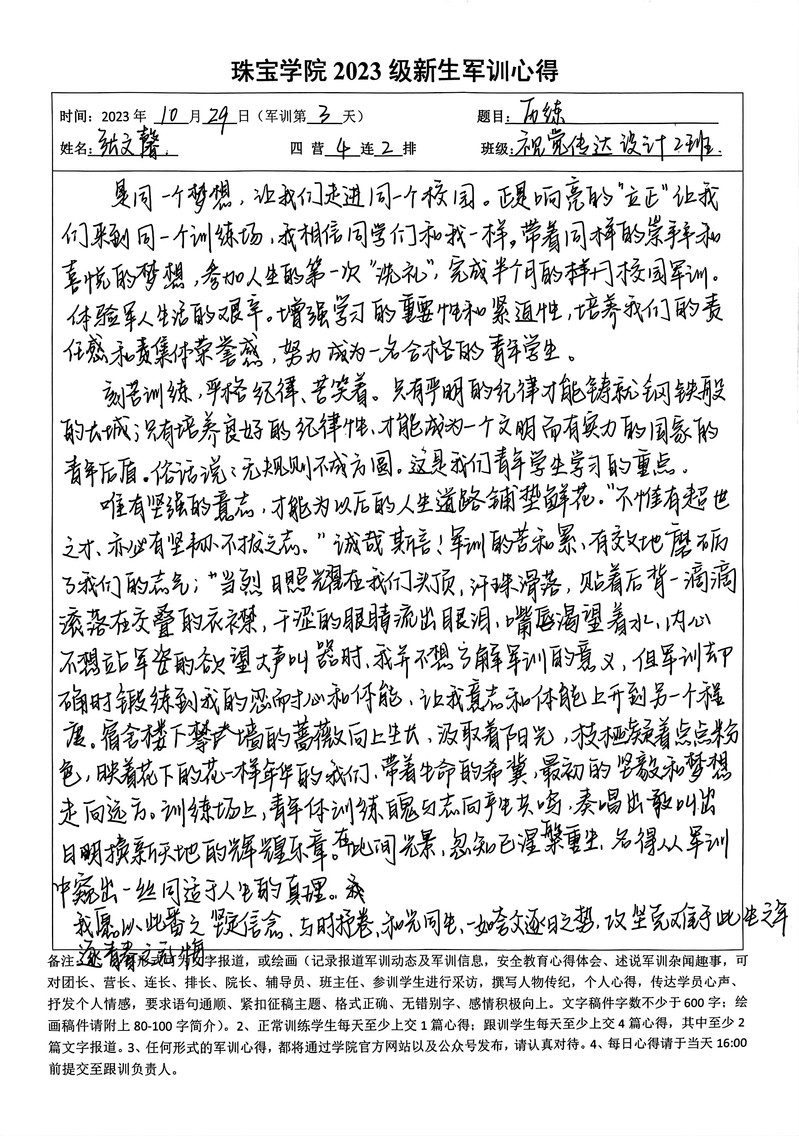 珠宝学院 2023 级新生军训心得
时间：2023 年 10 月 29 日（军训第 3 天） 题目：历练
姓名：张文馨 四 营 4 连 2 排 班级：视觉传达设计2班
是同一个梦想，让我们走进同一个校园。正是响亮的"立正"让我
们来到同一个训练场，我相信同学们和我一样。带着同样的崇拜和
喜悦的梦想，参加人生的第一次"洗礼"，完成半个月的校园军训。
体验军人生活的艰辛。增强学习的重要性和紧迫性，培养我们的责
任感和责集体荣誉感，努力成为一名合格的青年学生。
刻苦训练，严格纪律、苦笑着。只有严明的纪律才能铸就钢铁般
的长城；只有培养良好的纪律性、才能成为一个文明而有实力的国家的
青年后盾。俗话说：无规则不成方圆。这是我们青年学生学习的重点。
唯有坚强的意志，才能为以后的人生道路铺垫鲜花。"不惟有超世
之才、亦必有坚韧不拔之志。"诚哉斯言！军训的苦和累、有效地磨砺
了我们的志气；"当烈日照耀在我们头顶，汗珠滑落，贴着后背一滴滴
滚落在交叠的衣襟，干涩的眼睛流出眼泪，嘴唇渴望着水，内心
不想站军姿的欲望大声叫嚣时、我并不想了解军训的意义，但军训却
确时锻练到我的忍耐心和体能，让我意志和体能上升到另一个程
度。宿舍楼下攀墙的蔷薇向上生长，汲取着阳光，枝桠凝着点点粉
色，映着花下的花一样年华的我们、带着生命的希冀，最初的坚毅和梦想
走向远方。训练场上，青年体训练魄与志向产生共鸣，奏唱出敢叫出
日明换新天地的辉煌乐章。在此间光景，忽知已涅槃重生，名得从军训
中窥出一丝同适于人生的真理。
我愿以此番之坚定信念、与时抒卷、和光同生、一如夸父逐日之势，攻坚克难于此生之年
逐青春之无悔
备注：形式可为文字报道，或绘画（记录报道军训动态及军训信息，安全教育心得体会、述说军训杂闻趣事，可
对团长、营长、连长、排长、院长、辅导员、班主任、参训学生进行采访，撰写人物传纪，个人心得，传达学员心声、
抒发个人情感，要求语句通顺、紧扣征稿主题、格式正确、无错别字、感情积极向上。文字稿件字数不少于 600 字；绘
画稿件请附上 80-100 字简介）。2、正常训练学生每天至少上交 1 篇心得；跟训学生每天至少上交 4 篇心得，其中至少 2
篇文字报道。3、任何形式的军训心得，都将通过学院官方网站以及公众号发布，请认真对待。4、每日心得请于当天 16:00
前提交至跟训负责人。